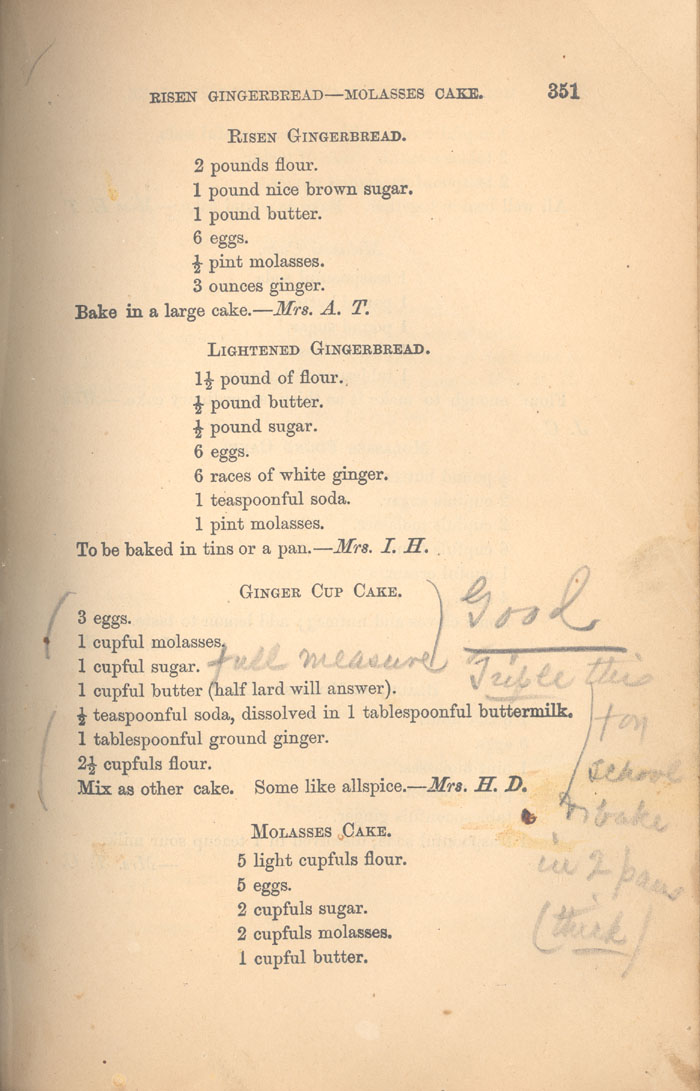 RISEN GINGERBREAD—MOLASSES CAKE. 351
RISEN GINGERBREAD.
2 pounds flour.
1 pound nice brown sugar.
1 pound butter.
6 eggs.
½ pint molasses.
3 ounces ginger.
Bake in a large cake.—Mrs. A. T.
LIGHTENED GINGERBREAD.
1½ pound of flour.
½ pound butter.
½ pound sugar.
6 eggs.
6 races of white ginger.
1 teaspoonful soda.
1 pint molasses.
To be baked in tins or a pan.—Mrs. I. H.
GINGER CUP CAKE.
3 eggs.
1 cupful molasses.
1 cupful sugar. full measure
1 cupful butter (half lard will answer).
½ teaspoonful soda, dissolved in 1 tablespoonful buttermilk.
1 tablespoonful ground ginger.
2½ cupfuls flour.
Mix as other cake. Some like allspice.—Mrs. H. D.
Good
Triple this
school
bake
in 2 pans
(thick)
MOLASSES CAKE.
5 light cupfuls flour.
5 eggs.
2 cupfuls sugar.
2 cupfuls molasses.
1 cupful butter.